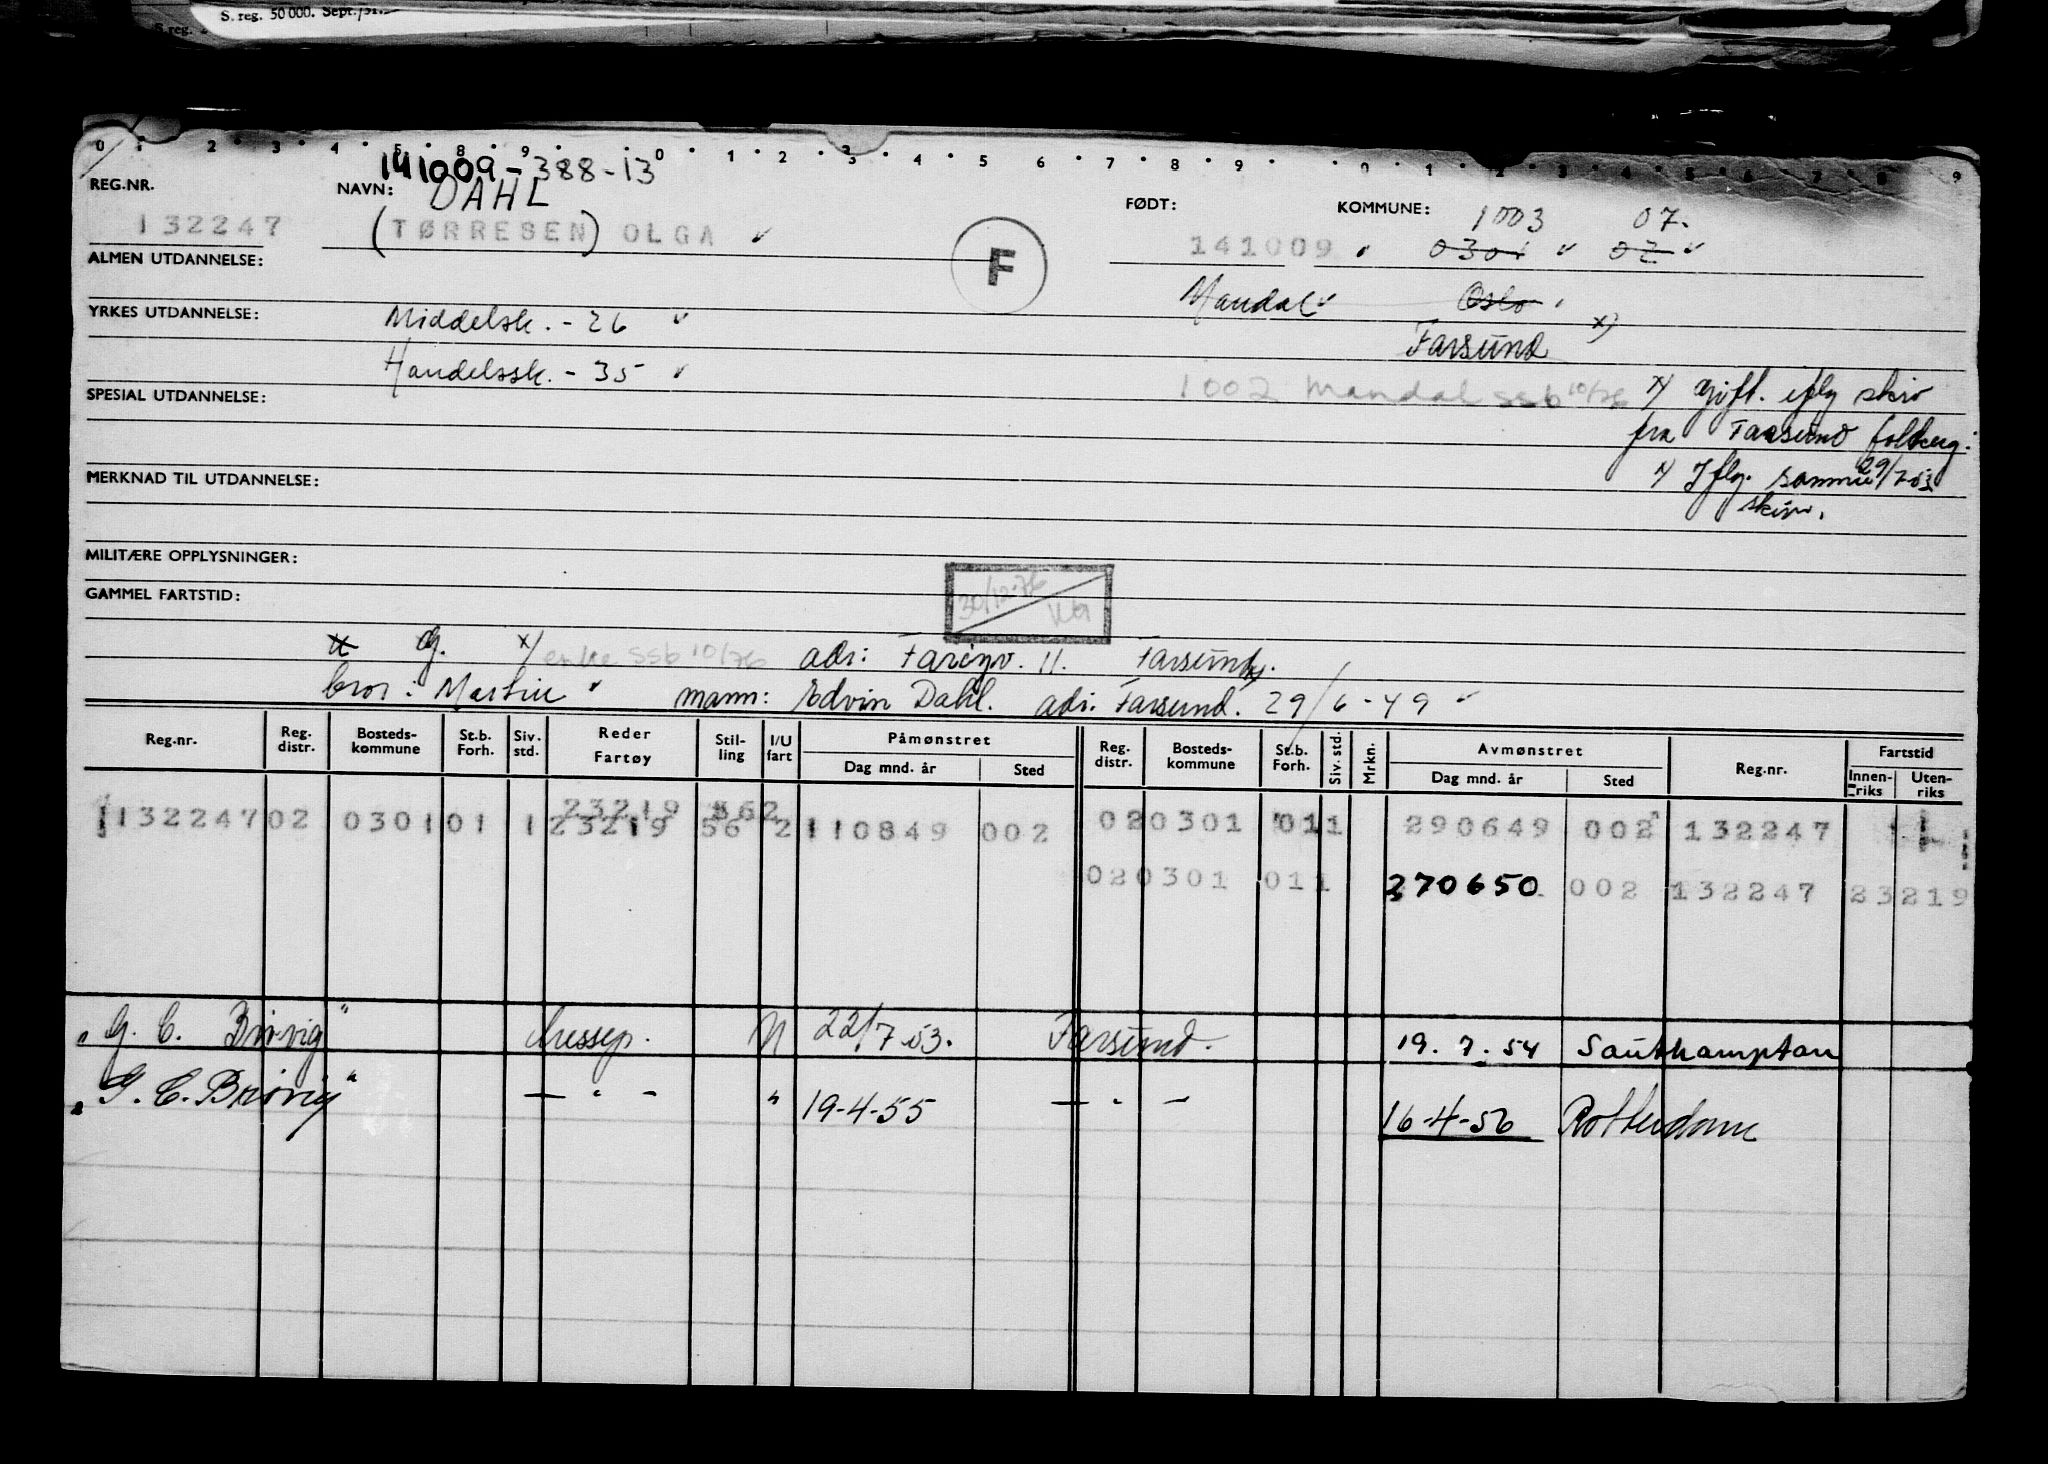 S. reg. 50 000. Sept.
S reg.
0 1 2 3 4 5 8 9 0 1 2 3 4 5 6 7 8 9 0 1 2 3 4 5 6 7 8 9
141009-388-13
REG.NR. NAVN: DAHL FØDT: KOMMUNE: 1003 07.
132247 (TØRRESEN) OLGA 141009 0301 02
ALMEN UTDANNELSE: F
Mandal Oslo
YRKES UTDANNELSE: Middelsk. - 26 x)
Farsund
Handelssk. - 35 x) Gift. iflg skiv
SPESIAL UTDANNELSE: 1002 Mandal ssb 10/76
fra Farsund folkereg.
MERKNAD TIL UTDANNELSE: x) Iflg. samme 29/7-53
skiv.
MILITÆRE OPPLYSNINGER:
GAMMEL FARTSTID: 30/12-76
u G. x) enke ssb 10/76 adr: Farøyv. 11. Farsund x)
bror: Martin mann: Edvin Dahl. adr: Farsund. 29/6-49
Reg.nr. Reg. distr. Bosteds-kommune St.b. Forh. Siv. std. Reder Fartøy Stil-ling I/U fart Påmønstret Reg. distr. Bosteds-kommune St.b. Forh. Siv. std. Mrkn. Avmønstret Reg.nr. Fartstid
Dag mnd. år Sted Dag mnd. år Sted Innen-riks Uten-riks
23219 562
132247 02 0301 01 1 23219 56 2 110849 002 02 0301 01 1 290649 002 132247
02 0301 01 1 270650 002 132247 23219
"G. C. Brøvig" messep. U 22/7.53. Farsund. 19.7.54 Southampton
"G. C. Brøvig" — " — " 19-4-55 — " — 16-4-56 Rotterdam